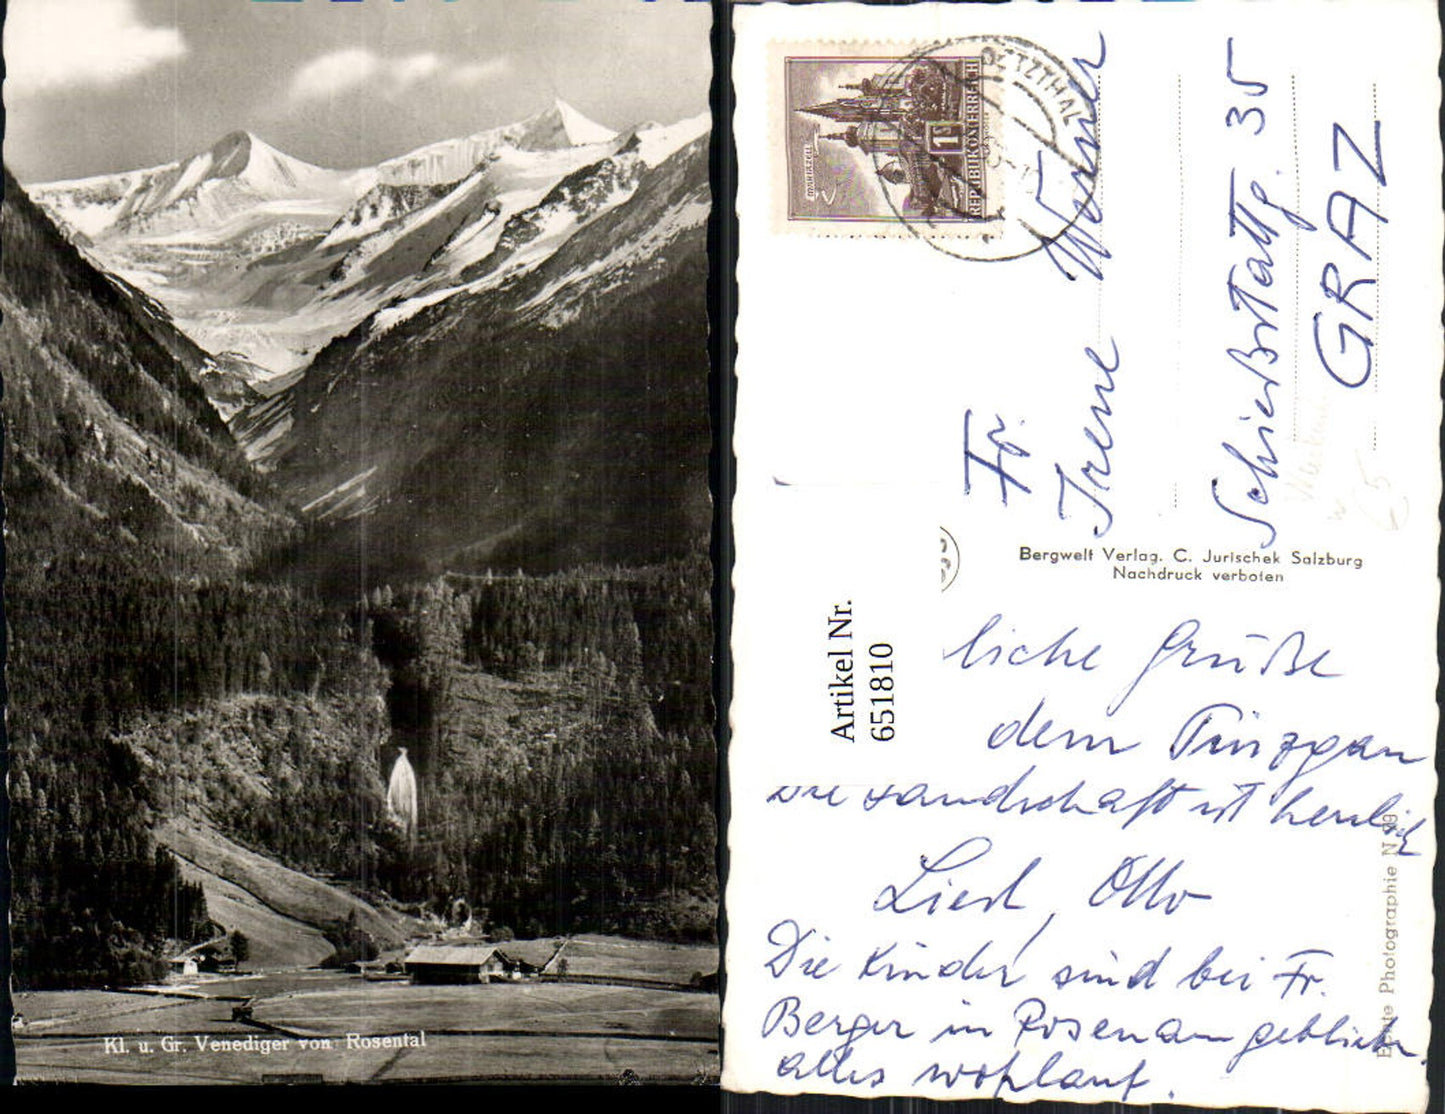 Kl. u. Gr. Venediger von Rosental
MARIAZELL
1S
REPUBLIK ÖSTERREICH
ÖTZTHAL
Fr.
Irene Werner
Schießstattg. 35
GRAZ
Bergwelt Verlag. C. Jurischek Salzburg
Nachdruck verboten
Artikel Nr.
651810
liche Grüße
dem Pinzgau
Die Landschaft ist herrlich
Liesl, Otto
Die Kinder sind bei Fr.
Berger in Rosenau geblieben.
alles wohlauf.
Echte Photographie N 99